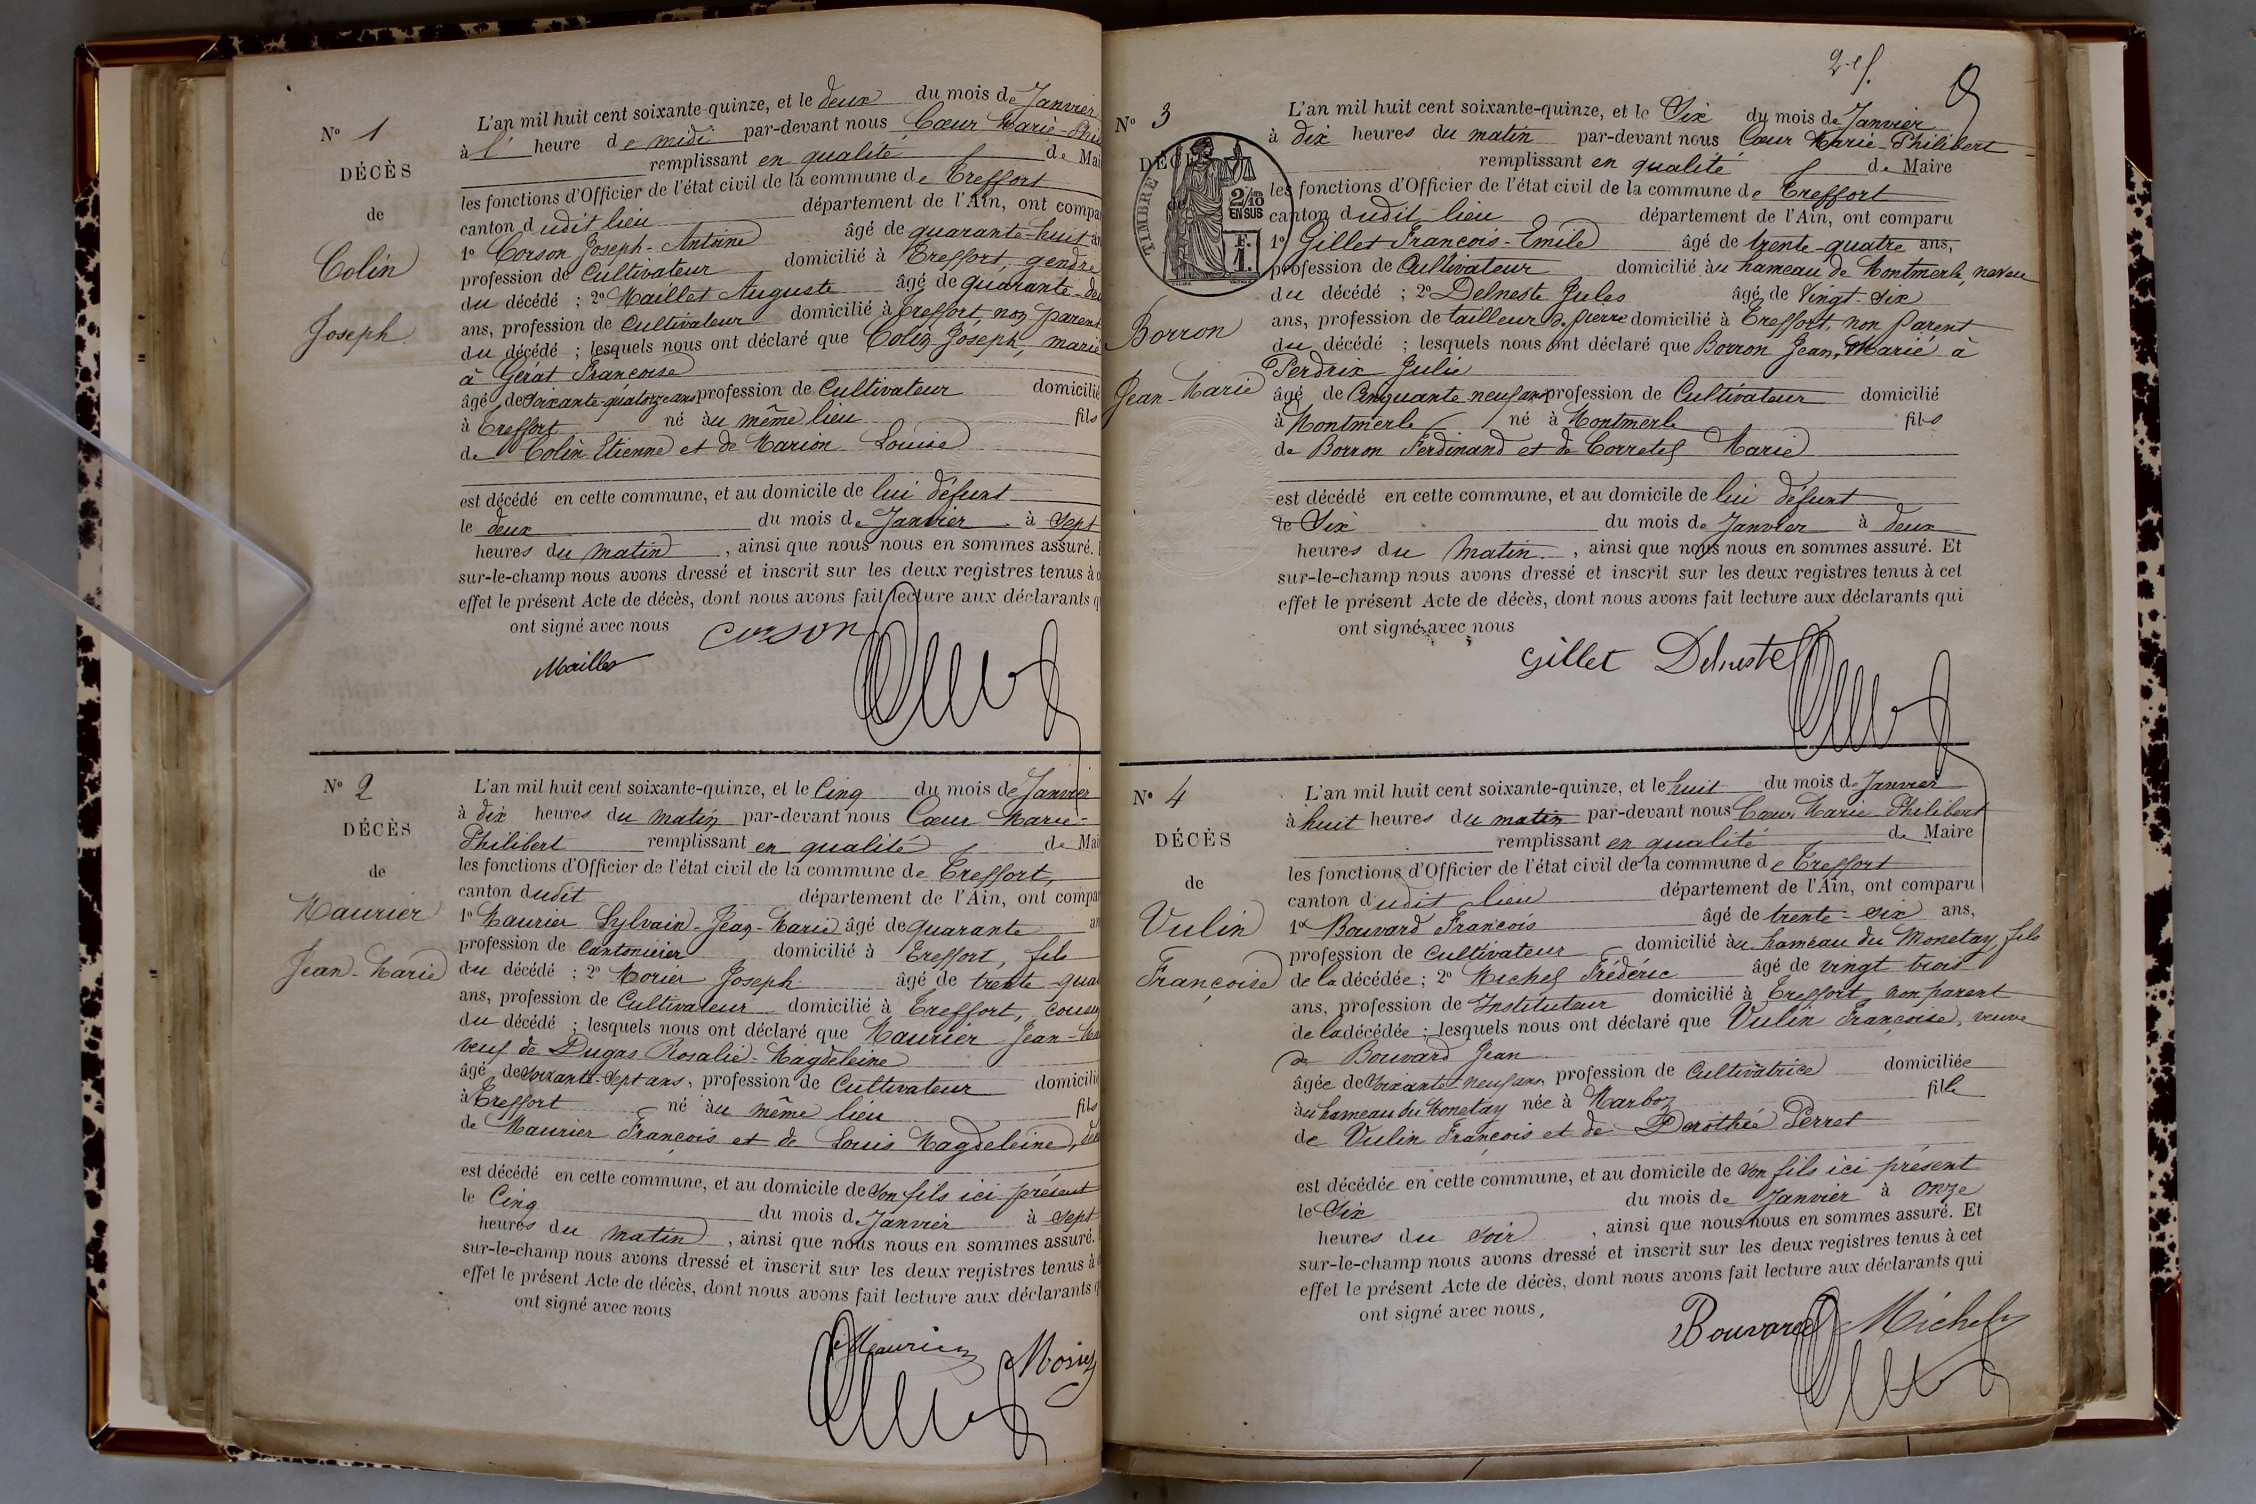 N° 1
DÉCÈS
de
Colin
Joseph
L'an mil huit cent soixante-quinze, et le deux du mois de Janvier
à l' heure de midi par-devant nous Cœur Marie-Phi
remplissant en qualité de Mai
les fonctions d'Officier de l'état civil de la commune de Treffort
canton dudit lieu département de l'Ain, ont compa
1° Corson Joseph-Antoine âgé de quarante-huit an
profession de Cultivateur domicilié à Treffort, gendre
du décédé ; 2° Maillet Auguste âgé de quarante-deu
ans, profession de Cultivateur domicilié à Treffort, non parent
du décédé ; lesquels nous ont déclaré que Colin Joseph, marié
à Gérat Françoise
âgé de soixante-quatorze ans profession de Cultivateur domicilié
à Treffort né au même lieu fils
de Colin Etienne et de Marion Louise
est décédé en cette commune, et au domicile de lui défunt
le deux du mois de Janvier à sept
heures du matin, ainsi que nous nous en sommes assuré.
sur-le-champ nous avons dressé et inscrit sur les deux registres tenus à c
effet le présent Acte de décès, dont nous avons fait lecture aux déclarants q
ont signé avec nous
Corson
Maillet
N° 2
DÉCÈS
de
Maurier
Jean-Marie
L'an mil huit cent soixante-quinze, et le Cinq du mois de Janvier
à dix heures du matin par-devant nous Cœur Marie-
Philibert remplissant en qualité de Mai
les fonctions d'Officier de l'état civil de la commune de Treffort,
canton dudit département de l'Ain, ont compar
1° Maurier Sylvain-Jean-Marie âgé de quarante an
profession de Cantonnier domicilié à Treffort, fils
du décédé ; 2° Morier Joseph âgé de trente-qua
ans, profession de Cultivateur domicilié à Treffort, cousin
du décédé ; lesquels nous ont déclaré que Maurier Jean-Ma
veuf de Dugas Rosalie-Magdeleine
âgé de soixante-sept ans, profession de Cultivateur domicilié
à Treffort né au même lieu fils
de Maurier François et de Louis Magdeleine,
est décédé en cette commune, et au domicile de son fils ici présent
le Cinq du mois de Janvier à sept
heures du matin, ainsi que nous nous en sommes assuré.
sur-le-champ nous avons dressé et inscrit sur les deux registres tenus à c
effet le présent Acte de décès, dont nous avons fait lecture aux déclarants q
ont signé avec nous
Maurier Morier
2 ef.
N° 3
DÉCÈS
de
TIMBRE
2/10
EN SUS
F.
1.
Borron
Jean-Marie
L'an mil huit cent soixante-quinze, et le Six du mois de Janvier
à dix heures du matin par-devant nous Cœur Marie-Philibert
remplissant en qualité de Maire
les fonctions d'Officier de l'état civil de la commune de Treffort
canton dudit lieu département de l'Ain, ont comparu
1° Gillet François-Emile âgé de trente-quatre ans,
profession de Cultivateur domicilié au hameau de Montmerle, neveu
du décédé ; 2° Delneste Jules âgé de Vingt-six
ans, profession de tailleur de pierre domicilié à Treffort, non parent
du décédé ; lesquels nous ont déclaré que Borron Jean, Marié à
Perdrix Julie
âgé de Cinquante-neuf ans profession de Cultivateur domicilié
à Montmerle né à Montmerle fils
de Borron Ferdinand et de Corretel Marie
est décédé en cette commune, et au domicile de lui défunt
le Six du mois de Janvier à deux
heures du matin, ainsi que nous nous en sommes assuré. Et
sur-le-champ nous avons dressé et inscrit sur les deux registres tenus à cet
effet le présent Acte de décès, dont nous avons fait lecture aux déclarants qui
ont signé avec nous
Gillet Delneste
N° 4
DÉCÈS
de
Vulin
Françoise
L'an mil huit cent soixante-quinze, et le huit du mois de Janvier
à huit heures du matin par-devant nous Cœur Marie Philibert
remplissant en qualité de Maire
les fonctions d'Officier de l'état civil de la commune de Treffort
canton dudit lieu département de l'Ain, ont comparu
1° Bouvard François âgé de trente-six ans,
profession de Cultivateur domicilié au hameau du Monetay, fils
de la décédée ; 2° Michel Frédéric âgé de vingt trois
ans, profession de Instituteur domicilié à Treffort, non parent
de la décédée ; lesquels nous ont déclaré que Vulin Françoise, veuve
de Bouvard Jean
âgée de soixante-neuf ans, profession de Cultivatrice domiciliée
au hameau du Monetay née à Marboz fille
de Vulin François et de Dorothée Perret
est décédée en cette commune, et au domicile de son fils ici présent
le Six du mois de Janvier à onze
heures du soir, ainsi que nous nous en sommes assuré. Et
sur-le-champ nous avons dressé et inscrit sur les deux registres tenus à cet
effet le présent Acte de décès, dont nous avons fait lecture aux déclarants qui
ont signé avec nous,
Bouvard Michel